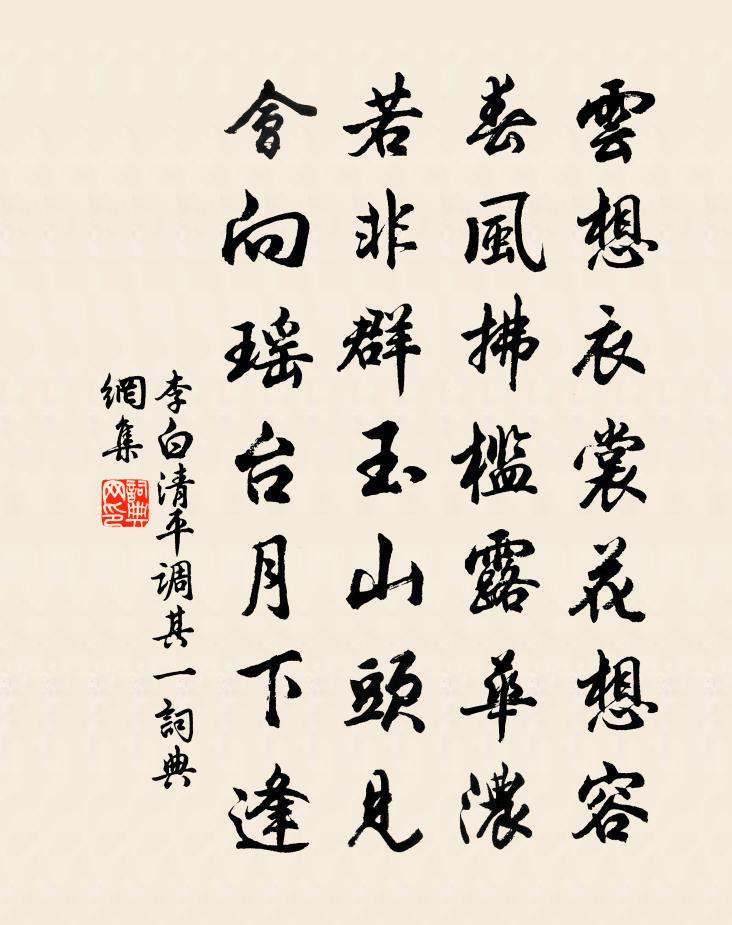 雲想衣裳花想容
春風拂檻露華濃
若非群玉山頭見
會向瑶台月下逢
李白清平调其一詞典
網集
詞典
网印